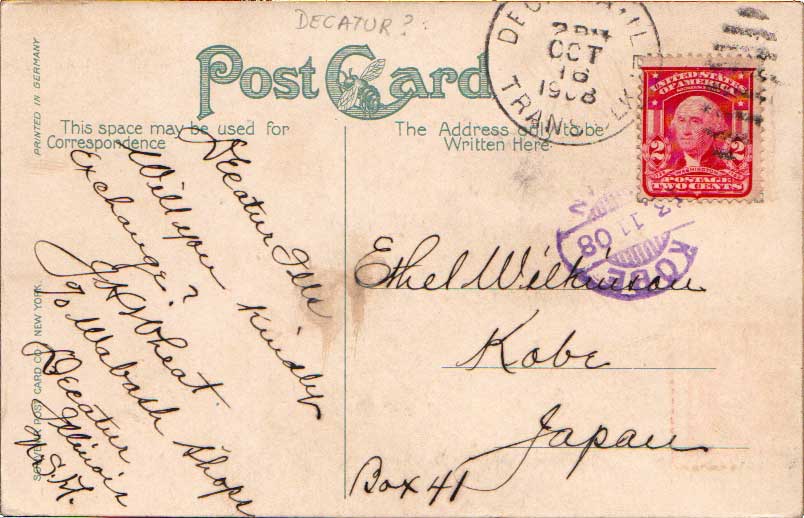 DECATUR?
PRINTED IN GERMANY
Post Card
This space may be used for
Correspondence
The Address only to be
Written Here
OCT
16
1908
TRANS. CLK
UNITED STATES
OF AMERICA
2 2
WASHINGTON
POSTAGE
TWO CENTS
11 08
KOBE
Decatur Ills
Will you kindly
Exchange?
J A Wheat
c/o Wabash shops
Decatur
Illinois
U.S.A.
Ethel Wilkinson
Kobe
Japan
Box 41
SOUVENIR POST CARD CO. NEW YORK